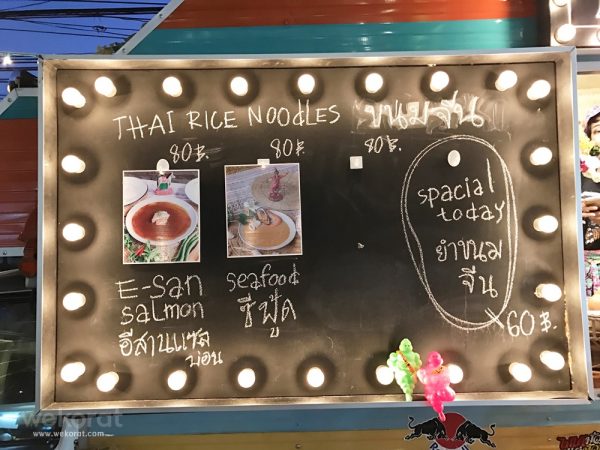 THAI RICE NOODLES ขนมจีน
80 ฿. 80 ฿. 80 ฿.
E-SAN
SALMON
อีสานแซล
มอน
seafood
ซีฟู้ด
spacial
today
ยำขนม
จีน
60 ฿.
wekorat
www.wekorat.com
Red Bull